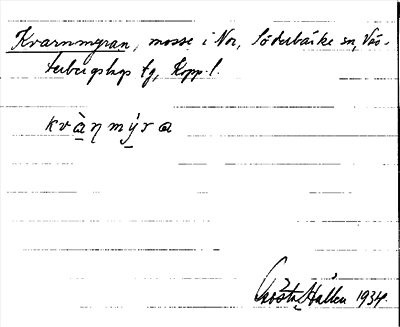 Kvarnmyran, mosse i Nor, Söderbärke sn, Väs-
terbergslags tg, Kopp. l.
kvànmýra
Gösta Hallen 1934.